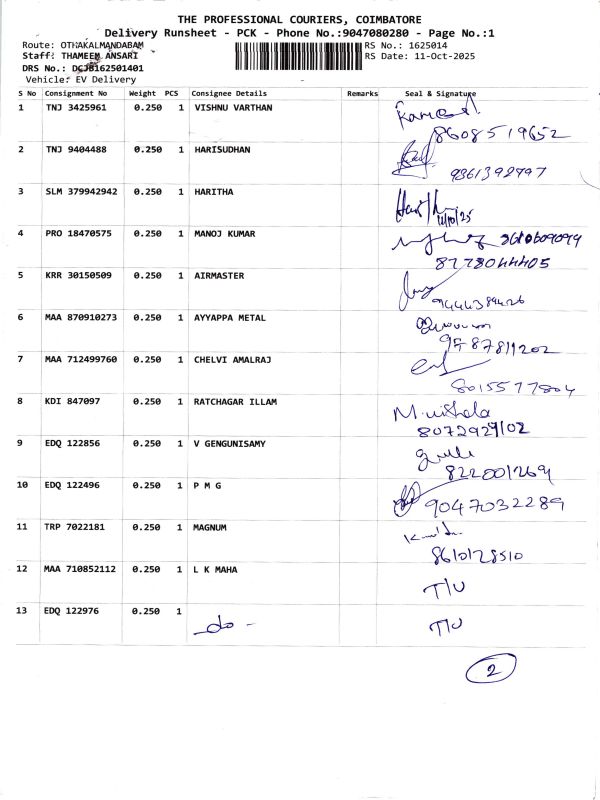 THE PROFESSIONAL COURIERS, COIMBATORE
Delivery Runsheet - PCK - Phone No.:9047080280 - Page No.:1
Route: OTHAKALMANDABAM RS No.: 1625014
Staff: THAMEEM ANSARI RS Date: 11-Oct-2025
DRS No.: DCJB162501401
Vehicle: EV Delivery
S No Consignment No Weight PCS Consignee Details Remarks Seal & Signature
1 TNJ 3425961 0.250 1 VISHNU VARTHAN
8608519652
2 TNJ 9404488 0.250 1 HARISUDHAN
9361392997
3 SLM 379942942 0.250 1 HARITHA
11/10/25
4 PRO 18470575 0.250 1 MANOJ KUMAR
8778044405
5 KRR 30150509 0.250 1 AIRMASTER
9444384426
6 MAA 870910273 0.250 1 AYYAPPA METAL
7 MAA 712499760 0.250 1 CHELVI AMALRAJ
8015577804
8 KDI 847097 0.250 1 RATCHAGAR ILLAM
8072929102
9 EDQ 122856 0.250 1 V GENGUNISAMY
822001269
10 EDQ 122496 0.250 1 P M G
9047032289
11 TRP 7022181 0.250 1 MAGNUM
8610128510
12 MAA 710852112 0.250 1 L K MAHA T/U
13 EDQ 122976 0.250 1 -do- T/U
2